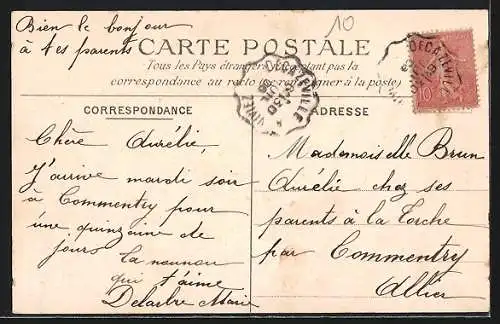 Bien le bonjour
à tes parents
10
CARTE POSTALE
Tous les Pays étrangers n'acceptent pas la
correspondance au recto (se renseigner à la poste)
DECAZEVILLE
CORRESPONDANCE
ADRESSE
Chère Aurélie,
J'arrive mardi soir
à Commentry pour
une quinzaine de
jours
ta
qui t'aime
Delarbre Marie
Mademoiselle Brun
Aurélie chez ses
parents à la Torche
par Commentry
Allier